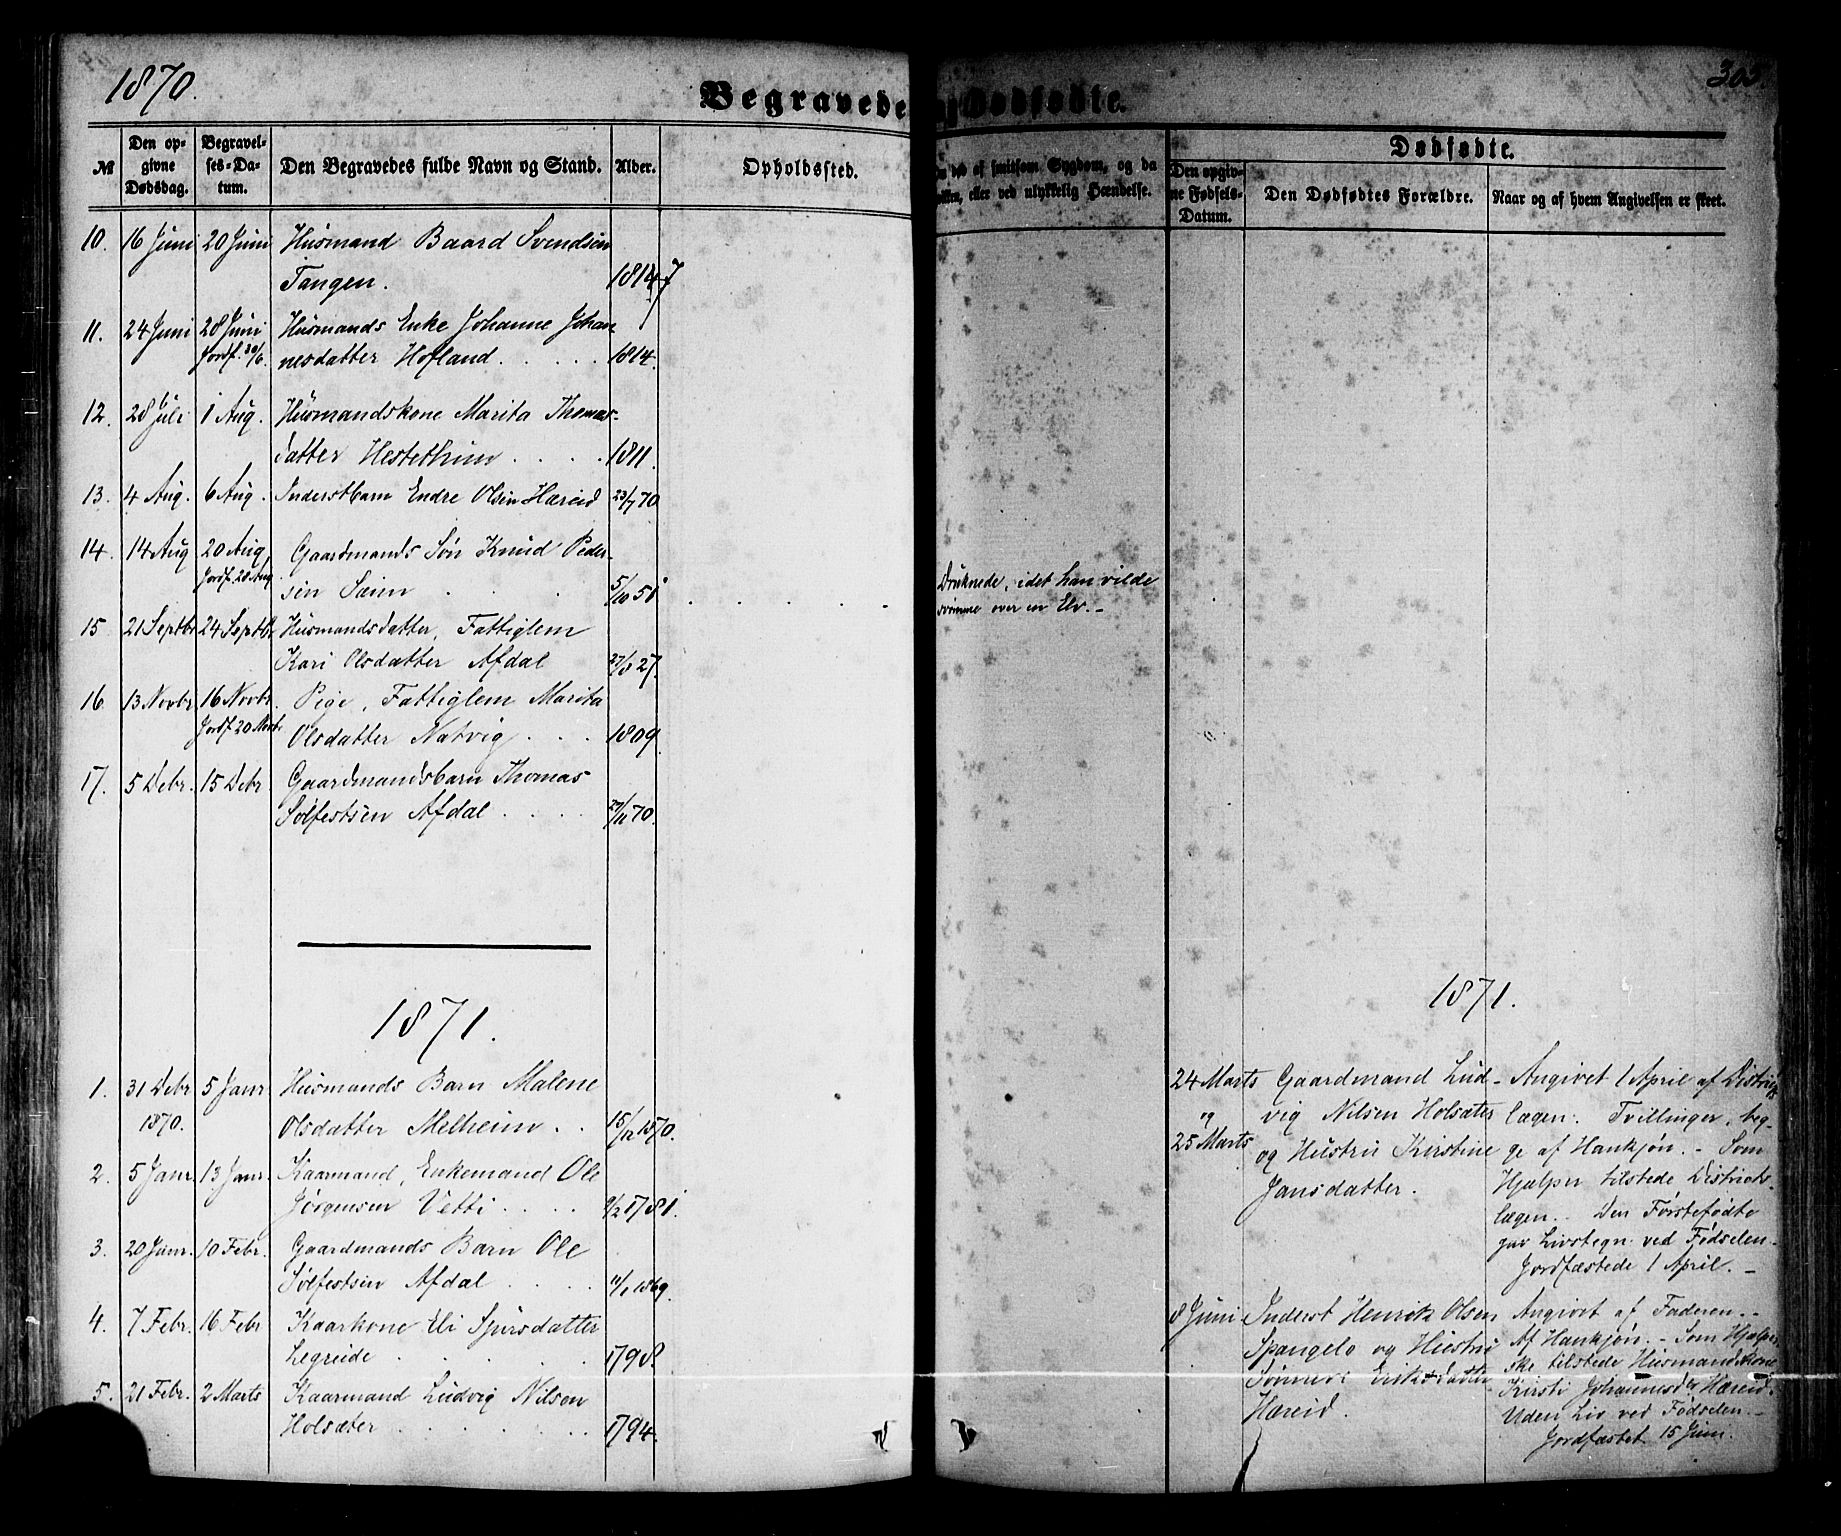 1870.
Begravede
og Dødfødte.
305.
№
Den opgivne Dødsdag.
Begravelses-Datum.
Den Begravedes fulde Navn og Stand.
Alder.
Opholdssted.
død af smitsom Sygdom, og da
eller ved ulykkelig Hændelse.
Dødfødte.
Den opgivne Fødsels-Datum.
Den Dødfødtes Forældre.
Naar og af hvem Angivelsen er skeet.
10. 16 Juni 20 Juni Husmand Baard Svendsen
Tangen. 1814 7
11. 24 Juni 28 Juni Husmands Enke Johanne Johan
Jordf. 30/6. nesdatter Hofland. . . . . 1814.
12. 28 Juli 1 Aug. Husmandskone Marita Thomas-
datter Hestethun . . . . 1811.
13. 4 Aug. 6 Aug. Inderstbarn Endre Olsen Hæreid 23/7 70
14. 14 Aug 20 Aug, Gaardmands Søn Knud Peder-
Jordf. 28 Aug. sen Seim . . . 5/10 51 . . . .
Druknede, idet han vilde
svømme over en Elv. -
15 21 Septbr 24 Septbr. Husmandsdatter, Fattiglem
Kari Olsdatter Afdal 27/8 27.
16 13 Novbr. 16 Novbr. Pige, Fattiglem Marita
Jordf 20 Novb. Olsdatter Natvig . . . 1809.
17. 5 Debr. 15 Debr Gaardmandsbarn Thomas
Sølfestsen Afdal . . . . 27/11 70.
1871.
1. 31 Debr 5 Janr Husmands Barn Malene
1870. Olsdatter Melheim . . 15/12 1870.
2. 5 Janr. 13 Janr. Kaarmand, Enkemand Ole
Jørgensen Vetti . . . . 9/2 1781.
3. 20 Janr. 10 Febr. Gaardmands Barn Ole
Sølfestsen Afdal . . . . 11/1 1869.
4. 7 Febr. 16 Febr Kaarkone Eli Sjursdatter
Legreide . . . . . 1798.
5. 21 Febr. 2 Marts Kaarmand Ludvig Nilsen
Holsæter . . . . . . 1794.
1871.
24 Marts Gaardmand Lud- Angivet 1 April af Distrikts
og vig Nilsen Holsæter lægen. Tvillinger, beg-
25 Marts og Hustru Kirstine ge af Hankjøn. - Som
Jansdatter. Hjælper tilstede Districts-
lægen. . Den Førstefødte
gav Livstegn ved Fødselen.
Jordfæstede 1 April. -
8 Juni Inderst Henrik Olsen Angivet af Faderen. -
Spangelo og Hustru Af Hankjøn. - Som Hjælper
Eriksdatter ske tilstede Husmandskone
Hæreid. Kirsti Johannesdr Hæreid.
Uden Liv ved Fødselen. -
Jordfæstet 15 Juni.